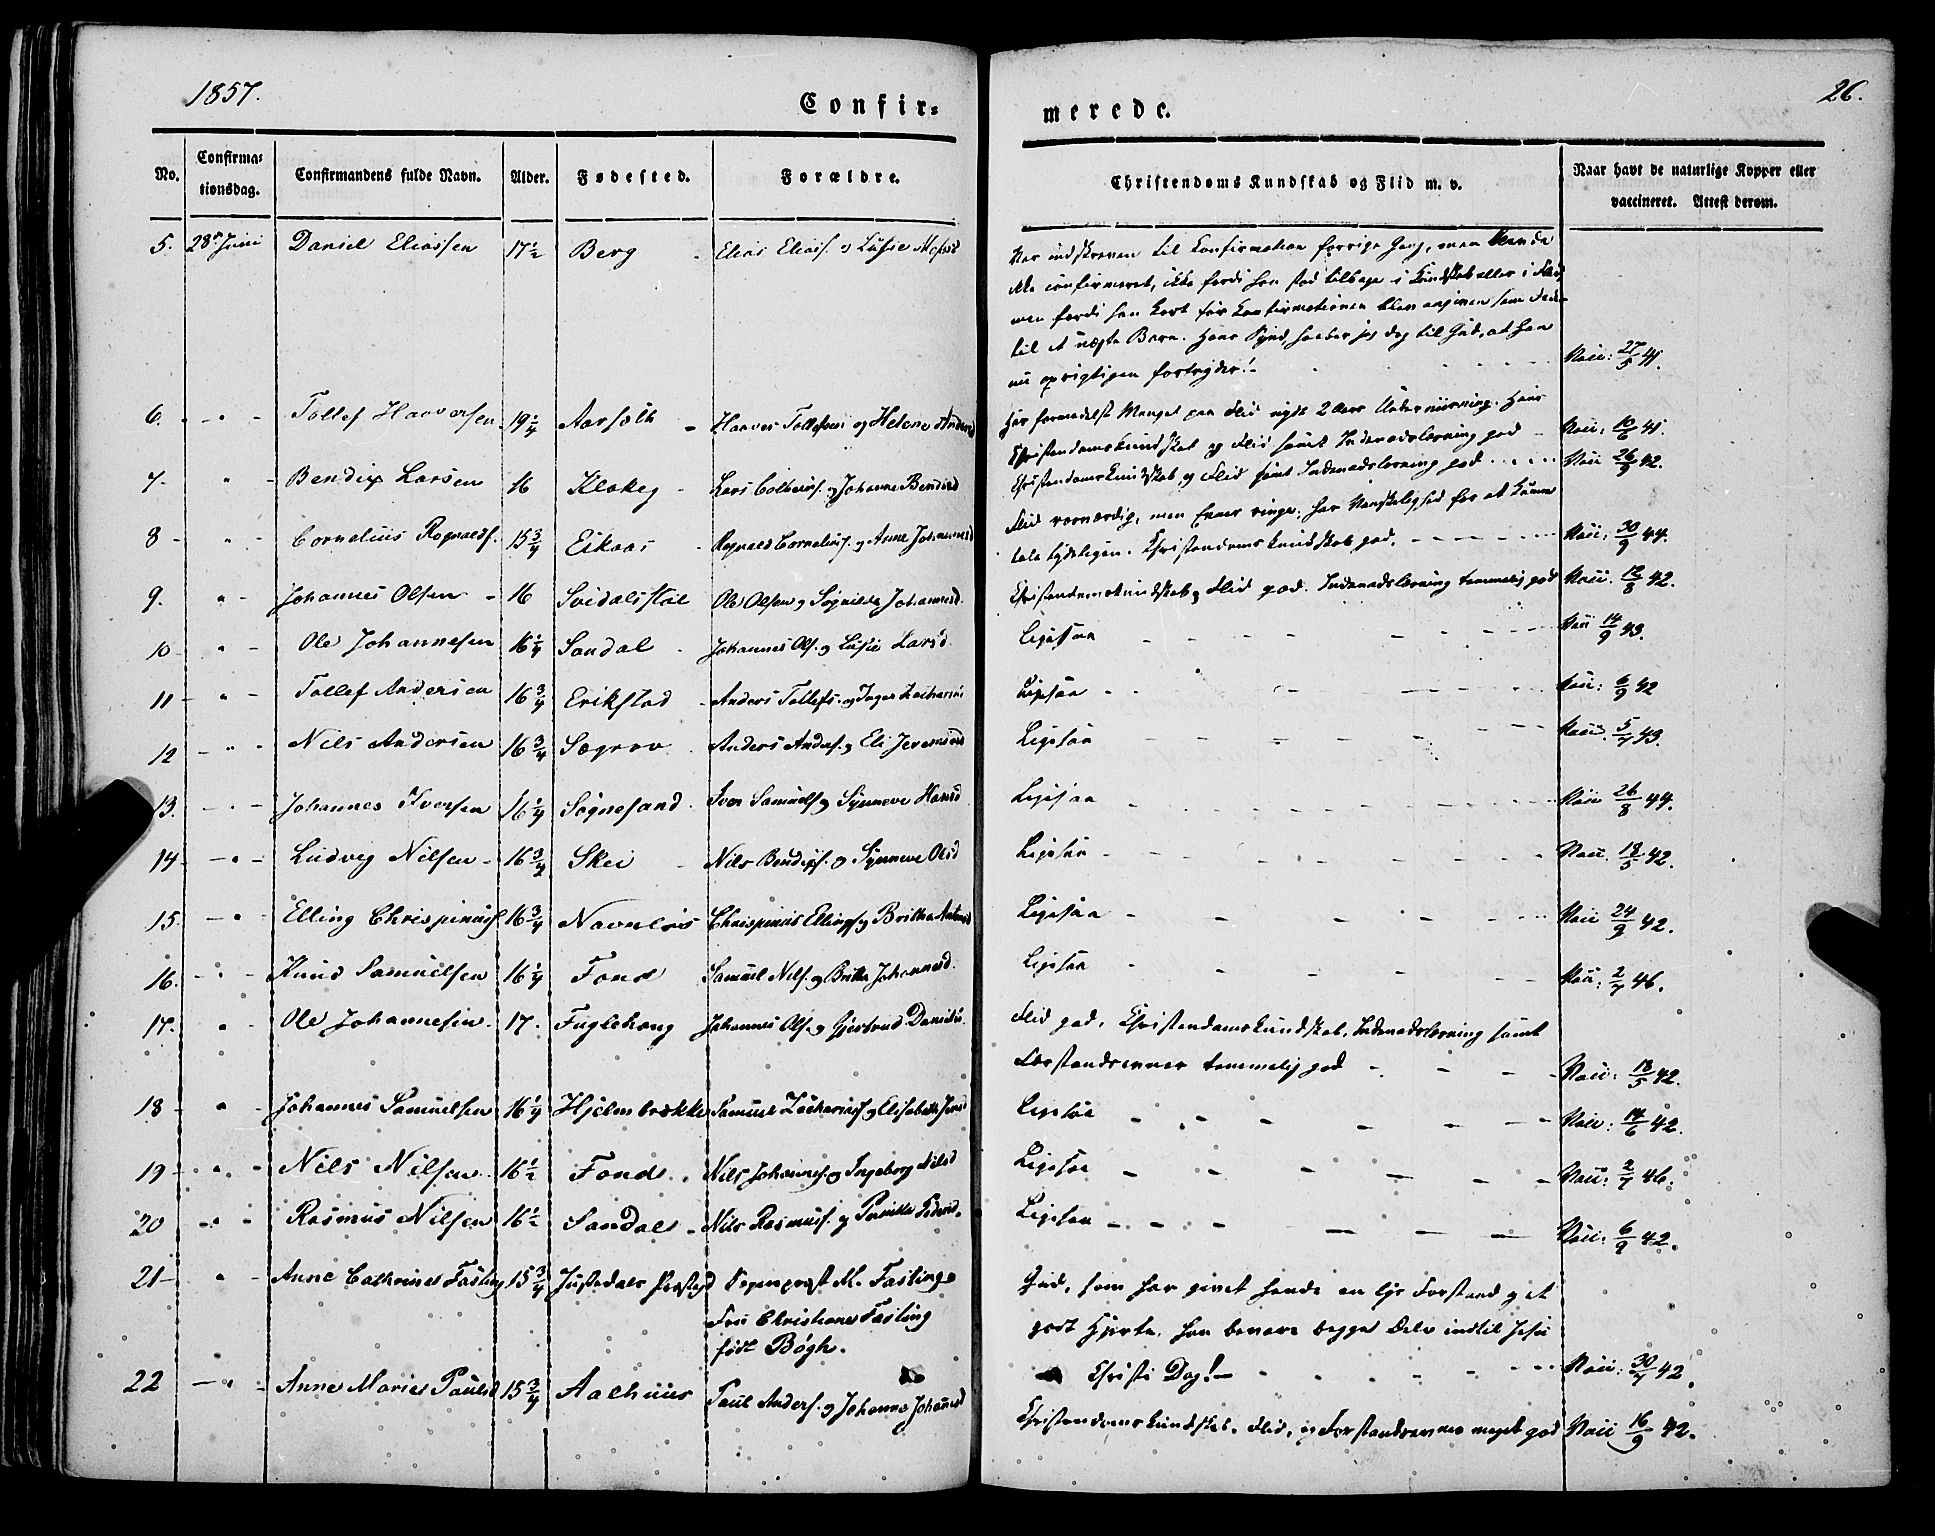 1857.
Confir=
merede.
26.
No.
Confirma=
tionsdag.
Confirmandens fulde Navn.
Alder.
Fødested.
Forældre.
Christendoms Kundskab og Flid m. v.
Naar havt de naturlige Kopper eller
vaccineret. Attest derom.
5. 28de Juni Daniel Eliassen 17 1/2 Berg Elias Elias. og Lusie
Var indskreven til Confirmation forrige Gang, men kunde
ikke confirmeret, ikke fordi han stod tilbage i Kundskab eller i Flid
men fordi han kort før Confirmationen blev angiven som Fader
til et uægte Barn. Hans Synd, haaber jeg dog til Gud, at han
nu oprigtigen fortryder! Vacc: 27/5 41.
6. " Tollef Haaversen 19 1/4 Aarseth Haaver Tollefsen og Helene Andersd
Har formedelst Mangel paa Flid nydt 2 Aars Underviisning. Hans
Christendomskundskab og Flid samt Indenadslæsning god Vacc: 10/6 41.
7. " Bendix Larsen 16 Klakeg Lars Colbeins. og Johanne Bendixd
Christendomskundskab, og Flid samt Indenadslæsning god Vacc 26/9 42.
8 " Cornelius Rognalds. 15 3/4 Eikaas Rognald Cornelius. og Anne Johannesd
Flid roesværdig, men Evner ringe; har Vanskelighed for at kunne
tale tydeligen. Christendomskundskab god. Vacc: 30/9 44.
9. " Johannes Olsen 16 Svidalsstøl Ole Olsen og Sognilda Johannesd.
Christendomskundskab og Flid god. Indenadslæsning temmelig god Vacc. 12/8 42.
10 " Ole Johannesen 16 1/4 Sandal Johannes Ols. og Lusie Larsd. Ligesaa Vacc 14/9 43.
11 " Tollef Andersen 16 3/4 Erikstad Anders Tollefs. og Inger Zacharias Ligesaa Vacc: 6/9 42
12 " Nils Andersen 16 3/4 Søgnav Anders Anders. og Eli Jeremiasd Ligesaa Vacc. 5/7 43.
13. " Johannes Iversen 16 1/4 Søgnesand Iver Samuels og Synneve Hansd Ligesaa Vacc 26/8 44.
14 " Ludvig Nilsen 16 3/4 Skei Nils Bendixs. og Synneve Olsd Ligesaa Vacc. 18/5 42.
15. " Elling Chrispinus. 16 3/4 Navnløs Chrispinus Ellings og Britha Antonsd Ligesaa Vacc 24/9 42.
16. " Knud Samuelsen 16 1/4 Fond Samuel Nils. og Britha Johannesd. Ligesaa Vacc: 2/7 46.
17. " Ole Johannesen. 17. Fuglehaug Johannes Ols. og Gjertrud Danielsd.
Flid god. Christendomskundskab, Indenadslæsning samt
Forstandsevner temmelig god Vacc: 18/5 42.
18 " Johannes Samuelsen 16 1/4 Hjelmbrække Samuel Zacharias og Elisabeth Jensd Ligesaa Vacc: 14/6 42.
19 " Nils Nilsen 16 1/2 Fond. Nils Johannes. og Ingeborg Nilsd Ligesaa Vacc: 2/7 46.
20 " Rasmus Nilsen 16 1/2 Sandal Nils Rasmus. og Pernille Pedersd. Ligesaa Vacc: 6/9 42.
21 " Anne Cathrine Fasting 15 3/4 Justedals Præstegd Sognepræst M. Fasting og
Fru Christiane Fasting
født Bøgh.
Gud, som har givet hende en lys Forstand og et
godt Hjerte, han bevare begge Dele indtil Jesu
Christi Dag! Vacc: 30/7 42.
22 " Anne Marie Paulsd 15 3/4 Aalhuus Paul Anders. og Johanne Johannesd
Christendomskundskab, Flid, og Forstandsevner meget god Vacc 16/9 42.